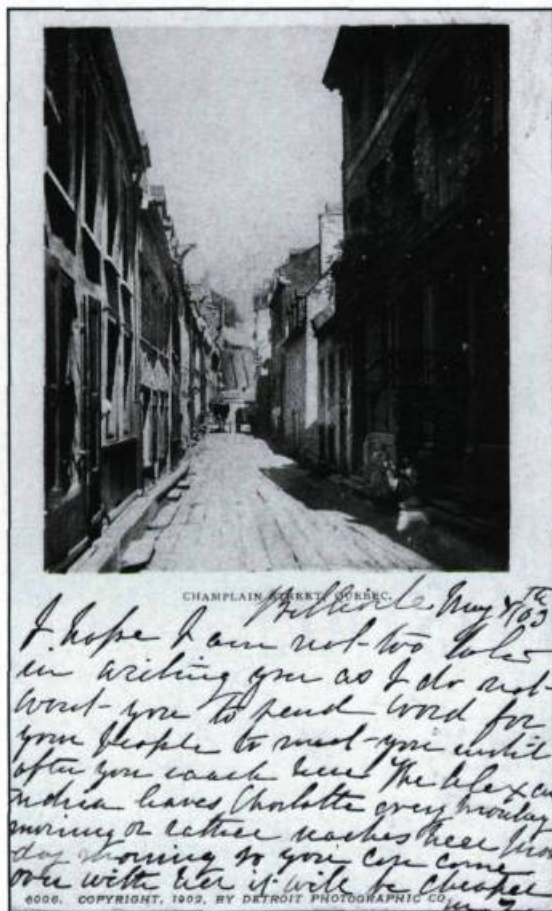 CHAMPLAIN STREET, QUEBEC.
Belleville May 4th/03
I hope I am not too late
in writing you as I do not
want you to send word for
your people to meet you until
after you reach here The Alexan
ndria leaves Charlotte every monday
morning or rather reaches here mon
day morning so you can come
over with her it will be cheaper
6006. COPYRIGHT, 1902, BY DETROIT PHOTOGRAPHIC CO.